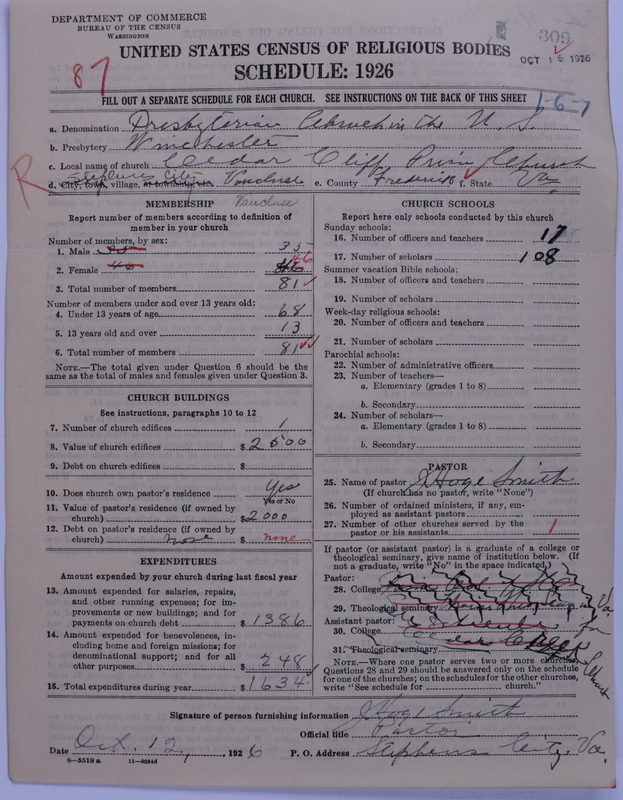 DEPARTMENT OF COMMERCE
BUREAU OF THE CENSUS
WASHINGTON
309
OCT 16 1926
UNITED STATES CENSUS OF RELIGIOUS BODIES
SCHEDULE: 1926
87
FILL OUT A SEPARATE SCHEDULE FOR EACH CHURCH. SEE INSTRUCTIONS ON THE BACK OF THIS SHEET
1-6-7
a. Denomination Presbyterian Church in the U. S.
b. Presbytery Winchester
c. Local name of church Cedar Cliff Church
R
Stephens City
d. City, town, village, or township, etc. Vaucluse e. County Frederick f. State Va.
Vaucluse
MEMBERSHIP
Report number of members according to definition of member in your church
Number of members, by sex:
1. Male 35
2. Female 46 46
3. Total number of members 81
Number of members under and over 13 years old:
4. Under 13 years of age 68
5. 13 years old and over 13
6. Total number of members 81
NOTE.—The total given under Question 6 should be the same as the total of males and females given under Question 3.
CHURCH BUILDINGS
See instructions, paragraphs 10 to 12
7. Number of church edifices 1
8. Value of church edifices $2500
9. Debt on church edifices $
10. Does church own pastor's residence Yes
Yes or No
11. Value of pastor's residence (if owned by church) $2000
12. Debt on pastor's residence (if owned by church) none $ none
EXPENDITURES
Amount expended by your church during last fiscal year
13. Amount expended for salaries, repairs, and other running expenses; for improvements or new buildings; and for payments on church debt $1386
14. Amount expended for benevolences, including home and foreign missions; for denominational support; and for all other purposes $248
15. Total expenditures during year $1634
CHURCH SCHOOLS
Report here only schools conducted by this church
Sunday schools:
16. Number of officers and teachers 17
17. Number of scholars 108
Summer vacation Bible schools:
18. Number of officers and teachers
19. Number of scholars
Week-day religious schools:
20. Number of officers and teachers
21. Number of scholars
Parochial schools:
22. Number of administrative officers
23. Number of teachers—
a. Elementary (grades 1 to 8)
b. Secondary
24. Number of scholars—
a. Elementary (grades 1 to 8)
b. Secondary
PASTOR
25. Name of pastor J Hoge Smith
(If church has no pastor, write "None")
26. Number of ordained ministers, if any, employed as assistant pastors
27. Number of other churches served by the pastor or his assistants 1
If pastor (or assistant pastor) is a graduate of a college or theological seminary, give name of institution below. (If not a graduate, write "No" in the space indicated.)
Pastor:
28. College
29. Theological seminary
Assistant pastor:
30. College
31. Theological seminary
See schedule for Church
NOTE.—Where one pastor serves two or more churches, Questions 28 and 29 should be answered only on the schedule for one of the churches; on the schedules for the other churches, write "See schedule for church."
Signature of person furnishing information J Hoge Smith
Official title Pastor
Date Oct. 12, 1926 P. O. Address Stephens City, Va
8—5518 a 11—9056d